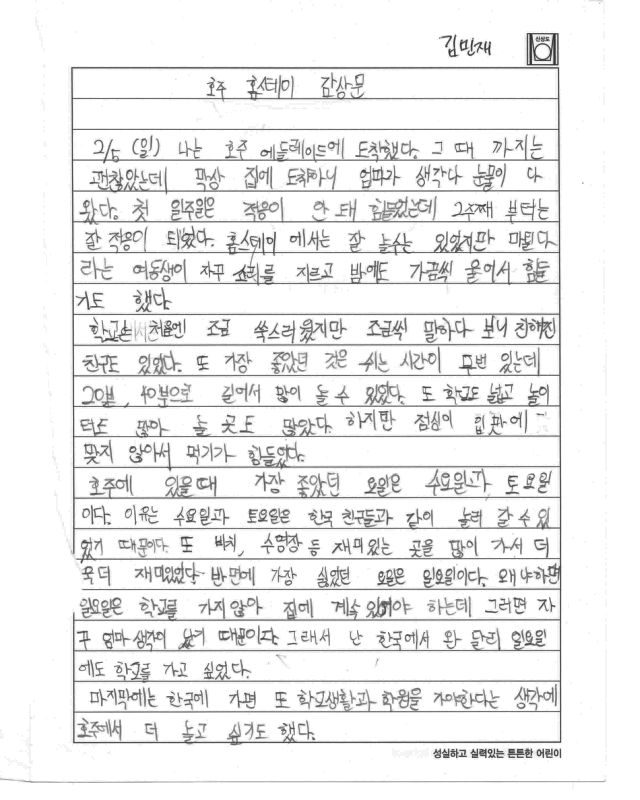 김민재
신상도
호주 홈스테이 감상문
2/5 (일) 나는 호주 에들레이드에 도착했다. 그 때 까지는
괜찮았는데 막상 집에 도착하니 엄마가 생각나 눈물이 나
왔다. 첫 일주일은 적응이 안 돼 힘들었는데 2주째 부터는
잘 적응이 되었다. 홈스테이 에서는 잘 놀수는 있었지만 마틸다
라는 여동생이 자꾸 소리를 지르고 밤에도 가끔씩 울어서 힘들
기도 했다
학교는 처음엔 조금 쑥스러웠지만 조금씩 말하다 보니 친해진
친구도 있었다. 또 가장 좋았던 것은 쉬는 시간이 두번 있는데
20분, 40분으로 길어서 많이 놀 수 있었다. 또 학교도 넓고 놀이
터도 많아 놀 곳도 많았다. 하지만 점심이 입맛에
맞지 않아서 먹기가 힘들었다.
호주에 있을때 가장 좋았던 요일은 수요일과 토요일
이다. 이유는 수요일과 토요일은 한국 친구들과 같이 놀러 갈 수 있
었기 때문이다. 또 비치, 수영장 등 재미있는 곳을 많이 가서 더
욱 더 재미있었다. 반면에 가장 싫었던 요일은 일요일이다. 왜냐하면
일요일은 학교를 가지않아 집에 계속 있어야 하는데 그러면 자
꾸 엄마 생각이 났기 때문이다 그래서 난 한국에서 완 달리 일요일
에도 학교를 가고 싶었다.
마지막에는 한국에 가면 또 학교생활과 학원을 가야한다는 생각에
호주에서 더 놀고 싶기도 했다.
성실하고 실력있는 튼튼한 어린이